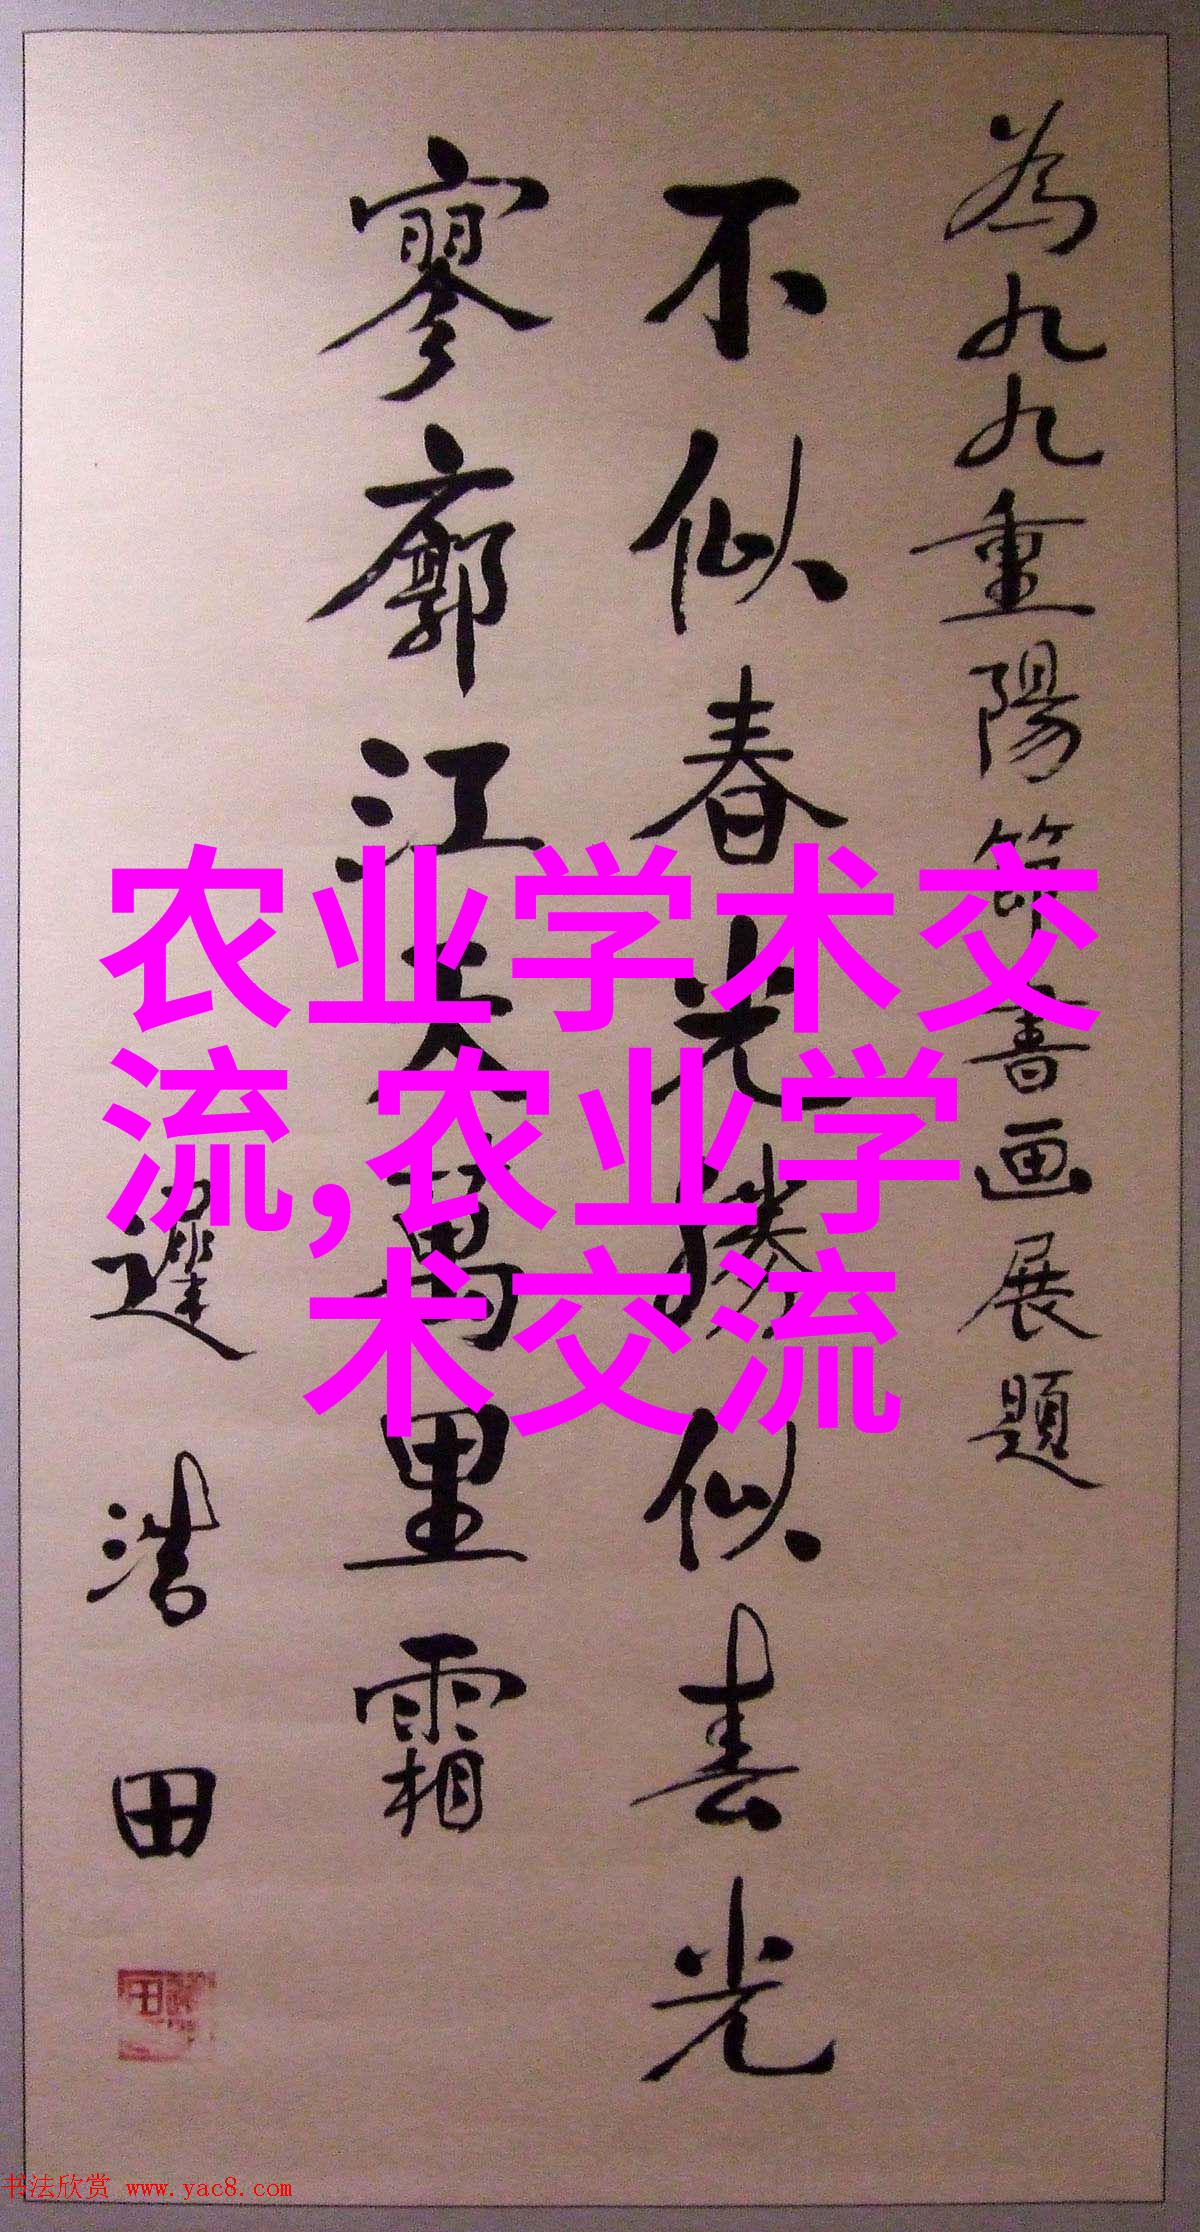 為九九重陽節書画展題
不似春光勝似春光
寥廓江天萬里霜
遲浩田
农业学术交
流,农业学
术交流
书法欣赏 www.yac8.com